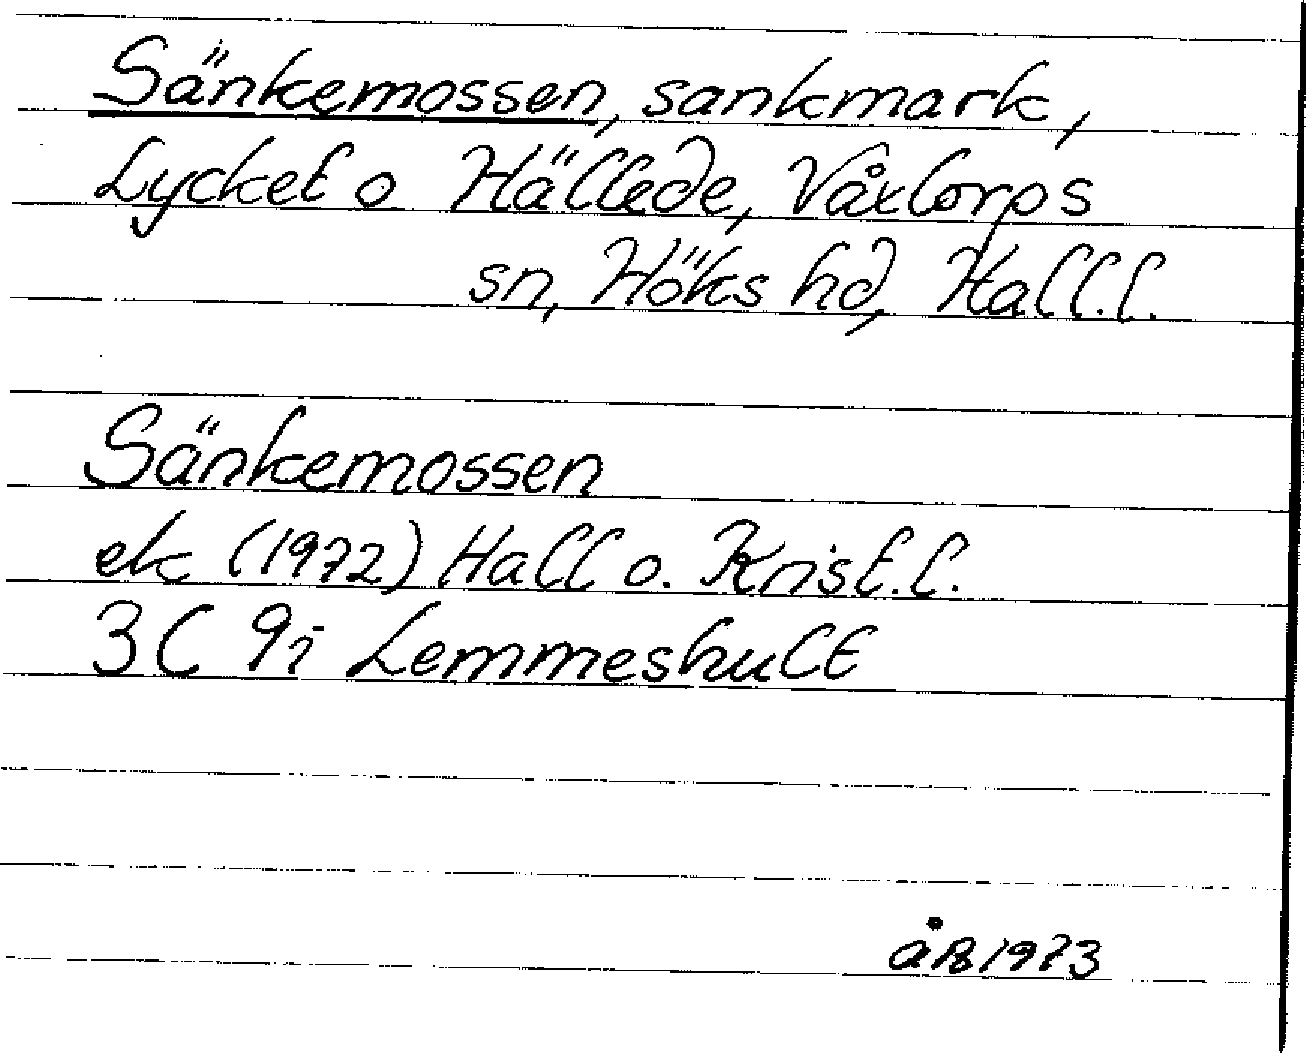 Sänkemossen, sankmark,
Lycket o Hällede, Våxtorps
sn, Höks hd, Hall.l.
Sänkemossen
ek (1972) Hall o. Krist.l.
3C 9i Lemmeshult
åB 1973